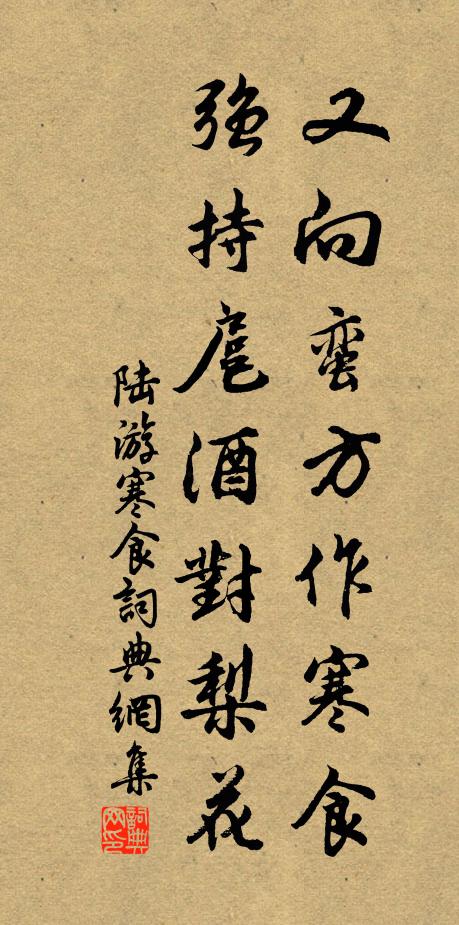 又向蛮方作寒食
強持卮酒對梨花
陆游寒食詞典網集
詞典
网印